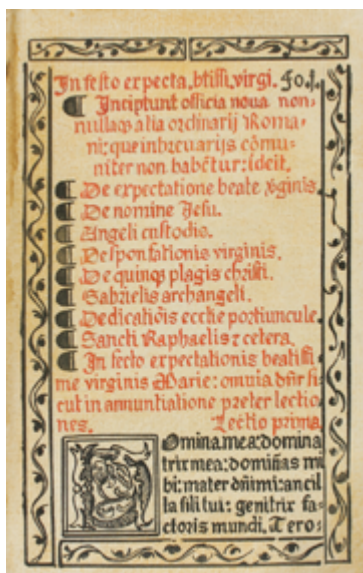 In festo expecta. btissi. virgi. Fo. j.
¶ Incipiunt officia noua non-
nullaqȝ alia ordinarij Roma-
ni: que in breuarijs cōmu-
niter non habētur: ideit.
¶ De expectatione beate v̓ginis.
¶ De nomine Jesu.
¶ Angeli custodis.
¶ De sponsationis virginis.
¶ De quinqȝ plagis christi.
¶ Gabrielis archangeli.
¶ Dedicatiōis ecctie portiuncule.
¶ Sancti Raphaelis ⁊ cetera.
¶ In festo expectationis beatissi
me virginis Marie: omnia dn̄r si
cut in annuntiatione preter lectio
nes. Lectio prima.
Domina mea: domina
trix mea: domin̄as mi
hi: mater dn̄i mi: ancil
la filii tui: genitrix fa-
ctoris mundi. Te ro: